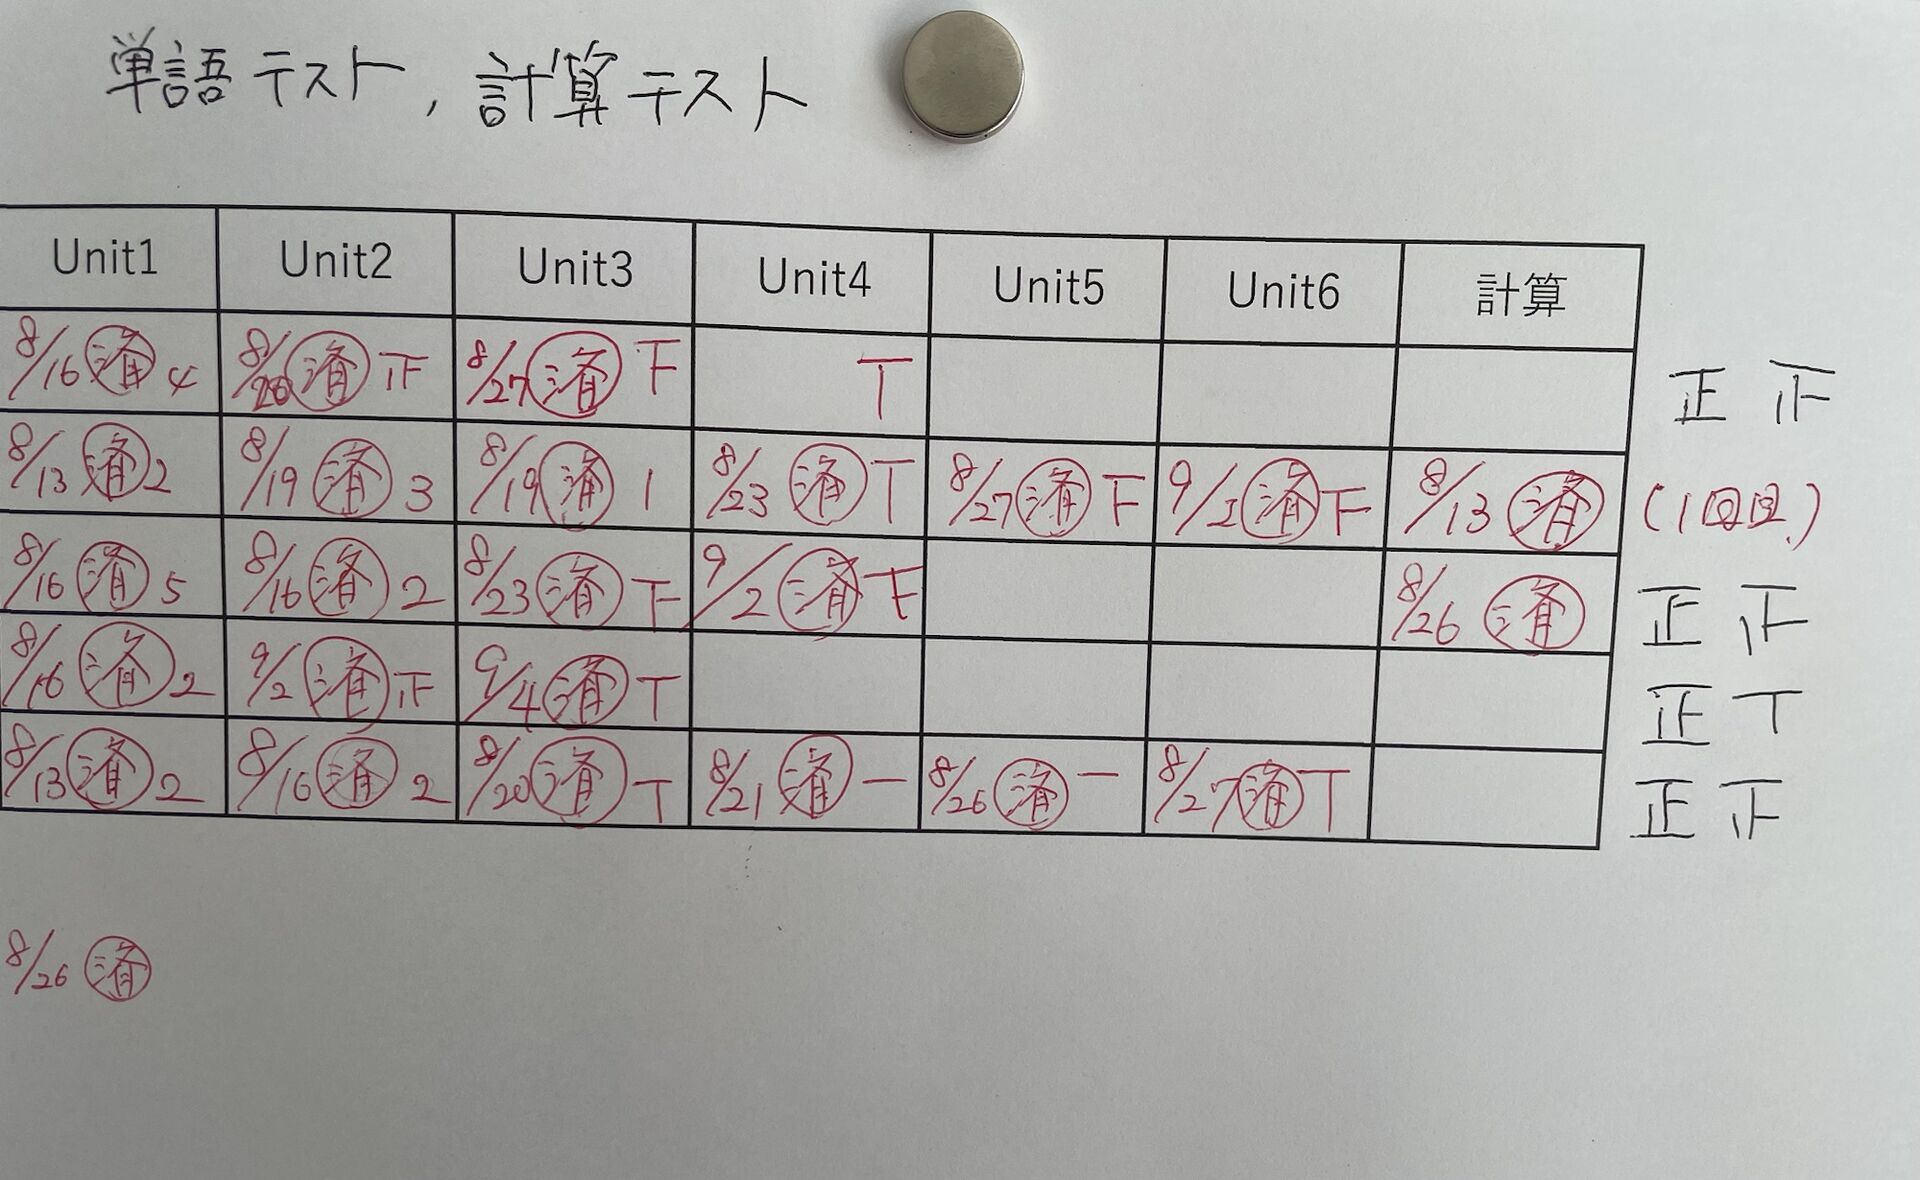 単語テスト, 計算テスト
Unit1 Unit2 Unit3 Unit4 Unit5 Unit6 計算
8/16 済 4 8/20 済 正 8/27 済 下 丅 正 正
8/13 済 2 8/19 済 3 8/19 済 1 8/23 済 丅 8/27 済 下 9/2 済 下 8/13 済 (1回目)
8/16 済 5 8/16 済 2 8/23 済 下 9/2 済 下 8/26 済 正 正
8/16 済 2 9/2 済 正 9/4 済 丅 正 丅
8/13 済 2 8/16 済 2 8/20 済 丅 8/21 済 一 8/26 済 一 8/27 済 丅 正 正
8/26 済